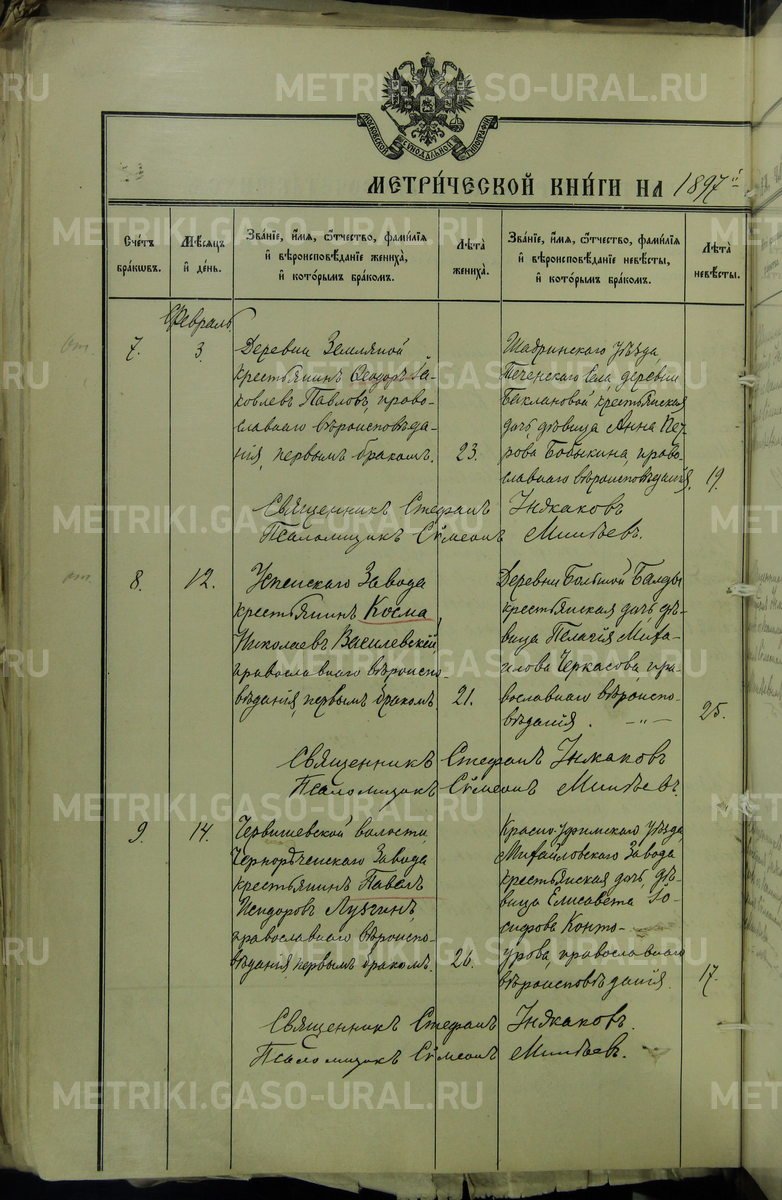 МОСКОВСКОЙ СѴНОДАЛЬНОЙ ТИПОГРАФІИ
МЕТРИ́ЧЕСКОЙ КНИ́ГИ НА 1897й
Сче́тъ бра́кωвъ.
Мѣ́сяцъ и҆ де́нь.
Зва́нїе, и҆́мя, ѻ҆́тчество, фами́лїя и҆ вѣроисповѣ́данїе жениха̀, и҆ кото́рымъ бра́комъ.
Лѣ́та жениха̀.
Зва́нїе, и҆́мя, ѻ҆́тчество, фами́лїя и҆ вѣроисповѣ́данїе невѣ́сты, и҆ кото́рымъ бра́комъ.
Лѣ́та невѣ́сты.
Февраль
7.
3.
Деревни Земляной
крестьянинъ Ѳеодоръ Іа-
ковлевъ Павловъ, право-
славнаго вѣроисповѣда-
нія, первымъ бракомъ.
23.
Шадринскаго уѣзда,
Теченскаго села, деревни
Баклановой крестьянская
дочь, дѣвица Анна Пет-
рова Бобыкина, право-
славнаго вѣроисповѣданія.
19.
Священникъ Стефанъ Инжаковъ
Псаломщикъ Сѵмеонъ Минѣевъ.
8.
12.
Успенскаго Завода
крестьянинъ Косма
Николаевъ Василевскій,
православнаго вѣроиспо-
вѣданія, первымъ бракомъ.
21.
Деревни Большой Балды
крестьянская дочь, дѣ-
вица Пелагія Миха-
илова Черкасова, пра-
вославнаго вѣроиспо-
вѣданія. -"-
25.
Священникъ Стефанъ Инжаковъ
Псаломщикъ Сѵмеонъ Минѣевъ.
9.
14.
Червишевской волости,
Чернорѣченскаго Завода
крестьянинъ Павелъ
Исидоровъ Лузгинъ,
православнаго вѣроиспо-
вѣданія, первымъ бракомъ.
26.
Красно-Уфимскаго уѣзда,
Михайловскаго Завода
крестьянская дочь, дѣ-
вица Елисавета Іо-
сифова Конто-
урова, православнаго
вѣроисповѣданія.
17.
Священникъ Стефанъ Инжаковъ.
Псаломщикъ Сѵмеонъ Минѣевъ.
METRIKI.GASO-URAL.RU